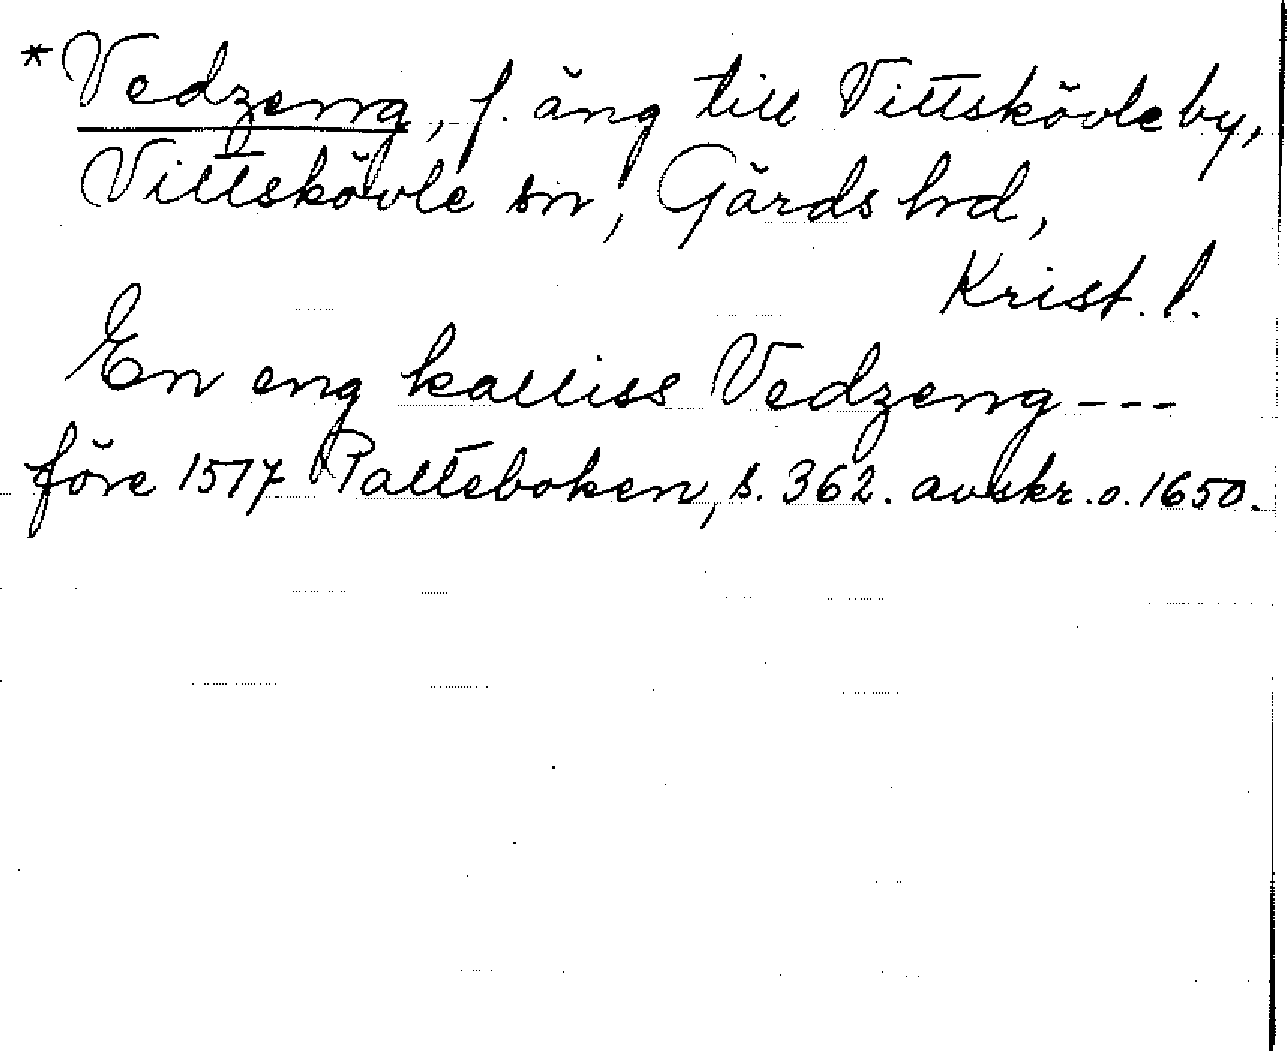 *Vedzeng, f. äng till Vittskövle by,
Vittskövle sn, Gärds hrd,
Krist. l.
En eng kalliss Vedzeng ---
före 1517 Palteboken, s. 362. avskr. o. 1650.